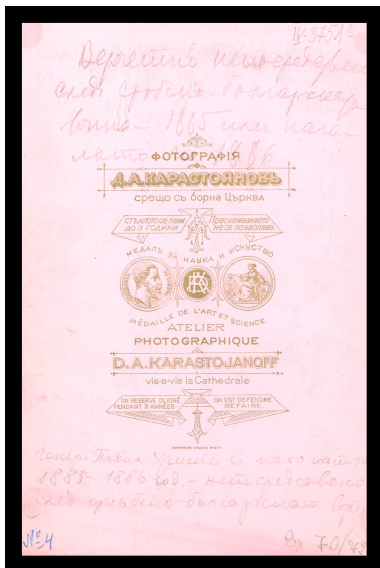 IV-3751
след сръбско-българската
война - 1885 или нача-
лото 1886
ФОТОГРАФІЯ
Д.А.КАРАСТОЯНОВЪ
срещо съ борна Църква
СТЪКЛОТО СЕ ПАЗИ
ДО 3 ГОДИНИ
ПРЕСНЕМВАНИЕТО
НЕ СЕ ПОЗВОЛЯВА
МЕДАЛЪ ЗА НАУКА И ИСКУСТВО
MÉDAILLE DE L'ART ET SCIENCE
ATELIER
PHOTOGRAPHIQUE
D.A. KARASTOJANOFF
vis-a-vis la Cathedrale
ON RESERVE CLICHÉ
PENDANT 3 ANNÉES
ON EST DEFENDRE
RE FAIRE
1885-1886 год. - непосредствено
след сръбско-българската
№4
70/72